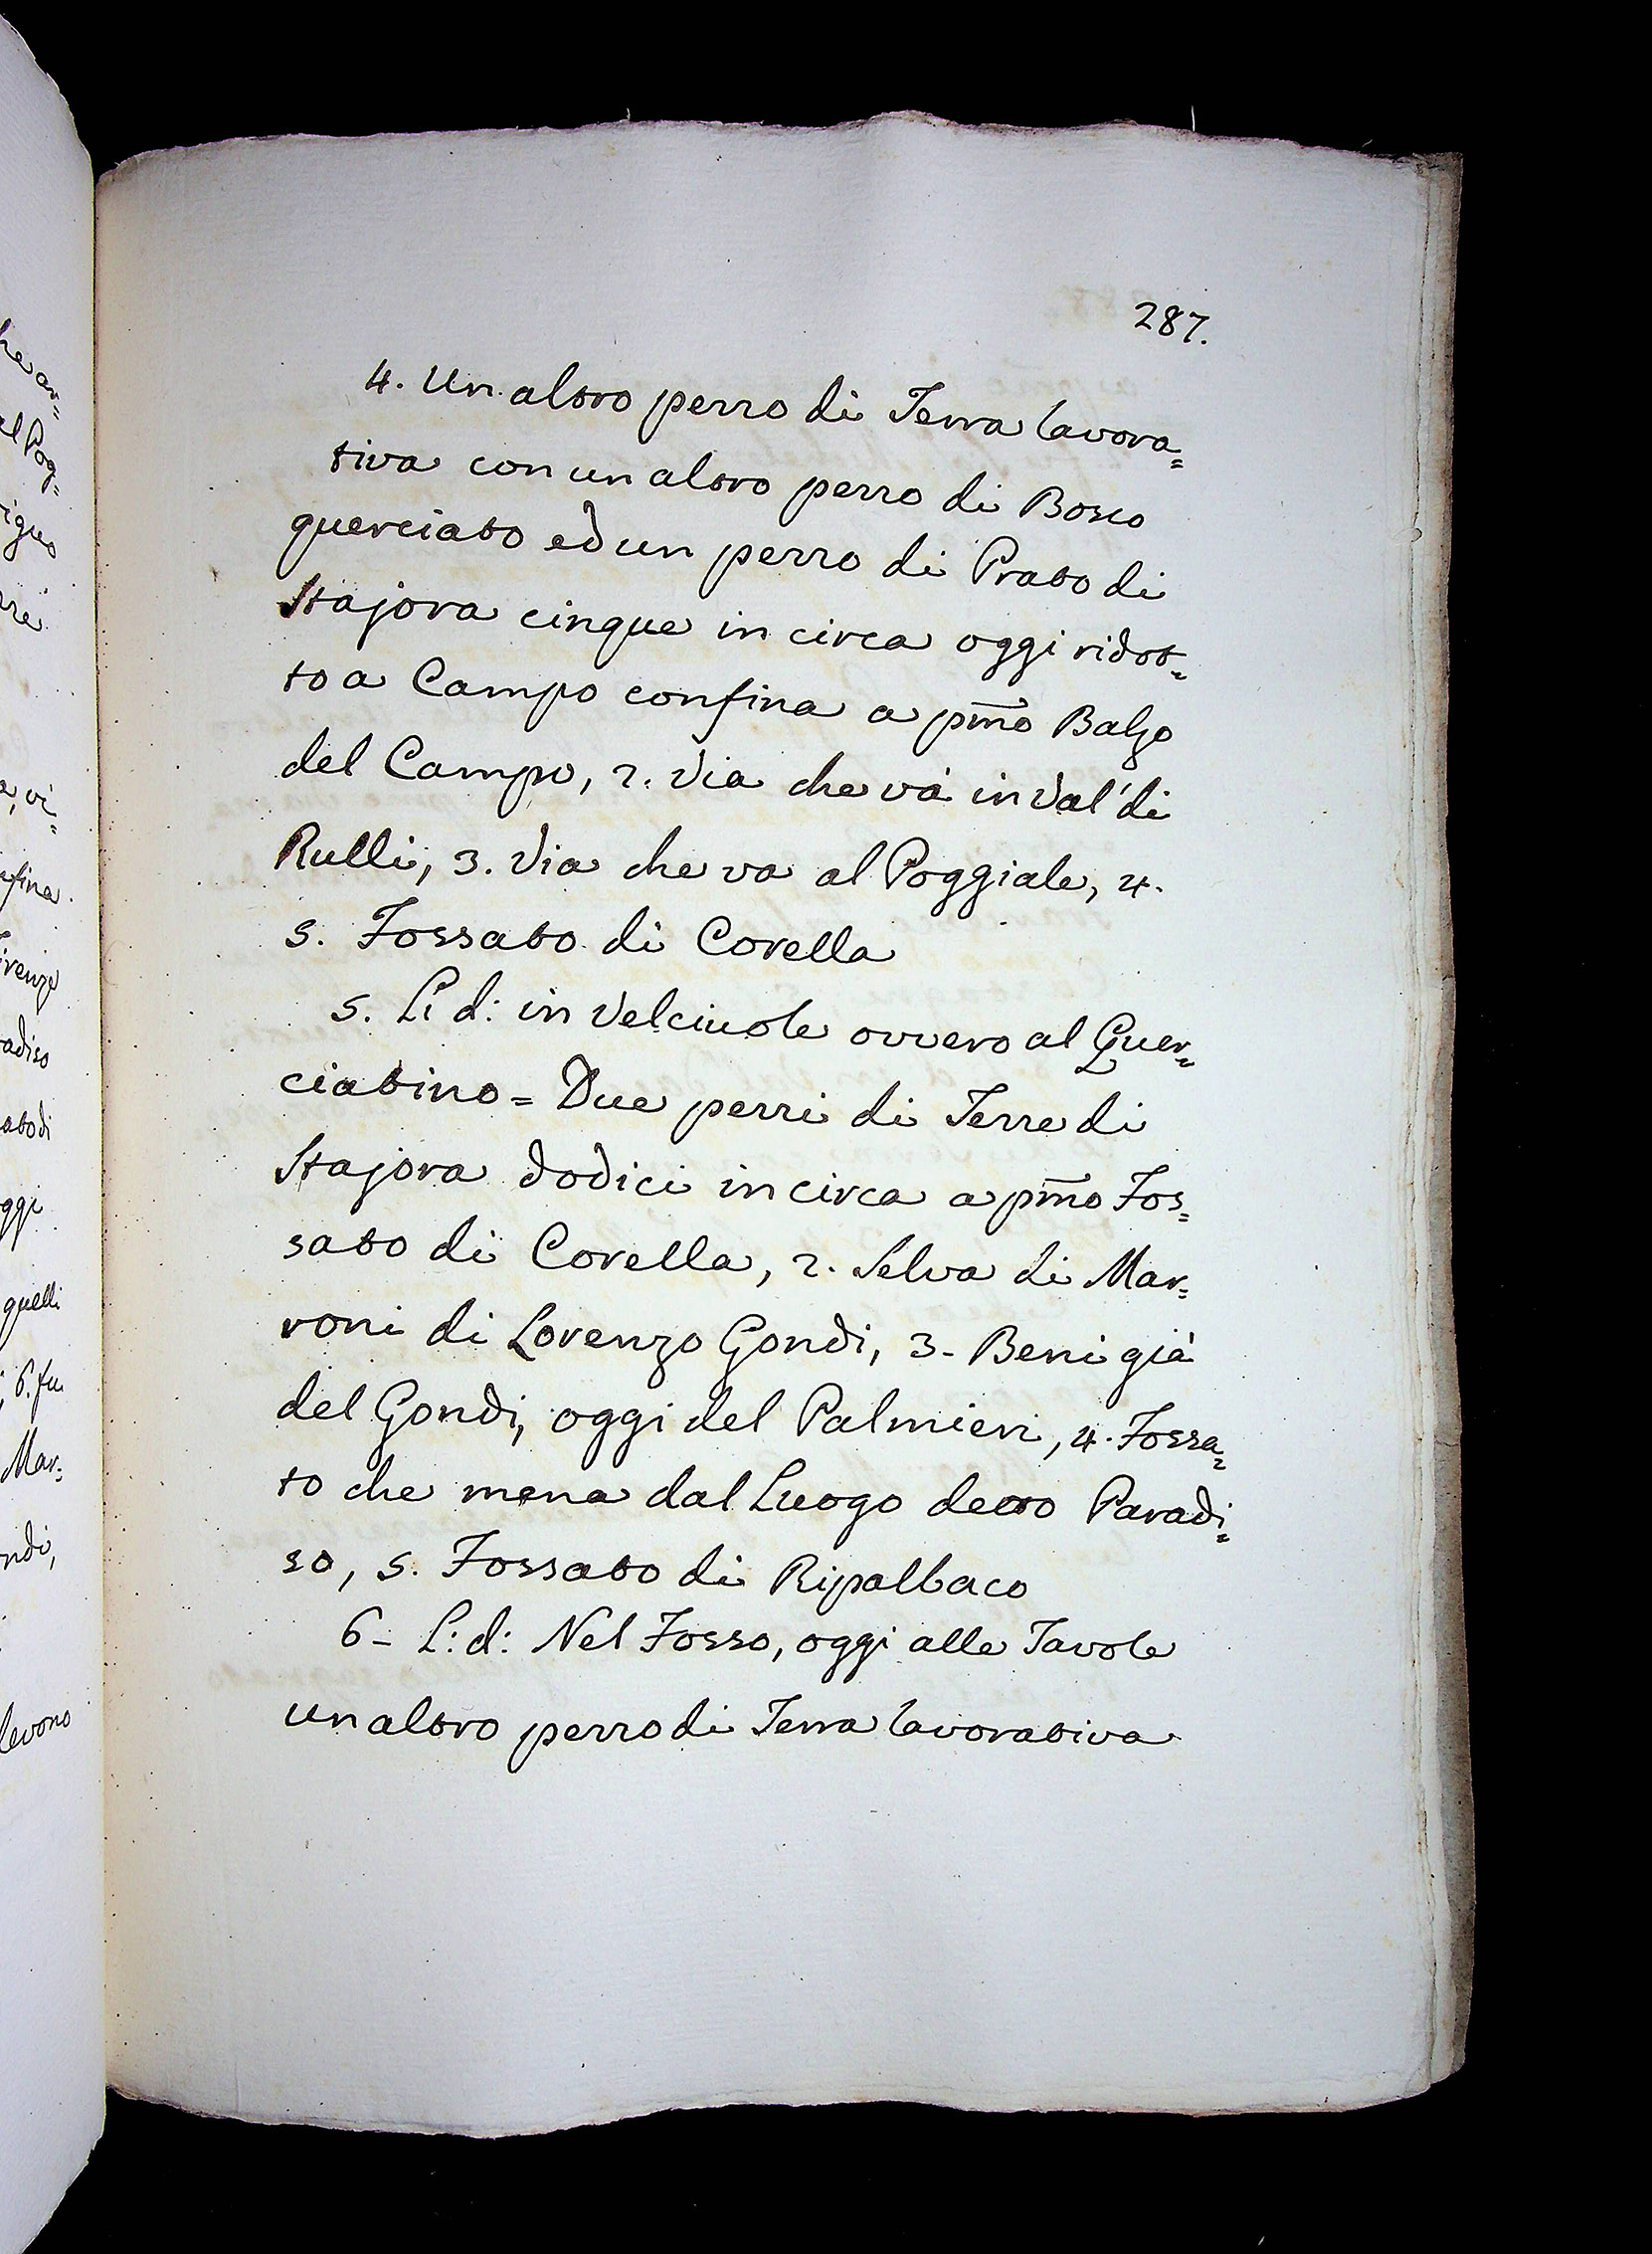 287.
4. Un altro pezzo di Terra lavora=
tiva con un altro pezzo di Bosco
querciato ed un pezzo di Prato di
Stajora cinque in circa oggi ridot=
to a Campo confina a pm̄o Balzo
del Campo, 2. Via che và in Val' di
Rulli, 3. Via che va al Poggiale, 4.
5. Fossato di Corella
5. L: d: in Velciuole ovvero al Quer=
ciatino = Due pezzi di Terre di
Stajora dodici in circa a pm̄o Fos=
sato di Corella, 2. Selva di Mar=
roni di Lorenzo Gondi, 3- Beni già
del Gondi, oggi del Palmieri, 4. Fossa=
to che mena dal Luogo detto Paradi=
so, 5. Fossato di Ripalbaco
6- L: d: Nel Fosso, oggi alle Tavole
un altro pezzo di Terra lavorativa